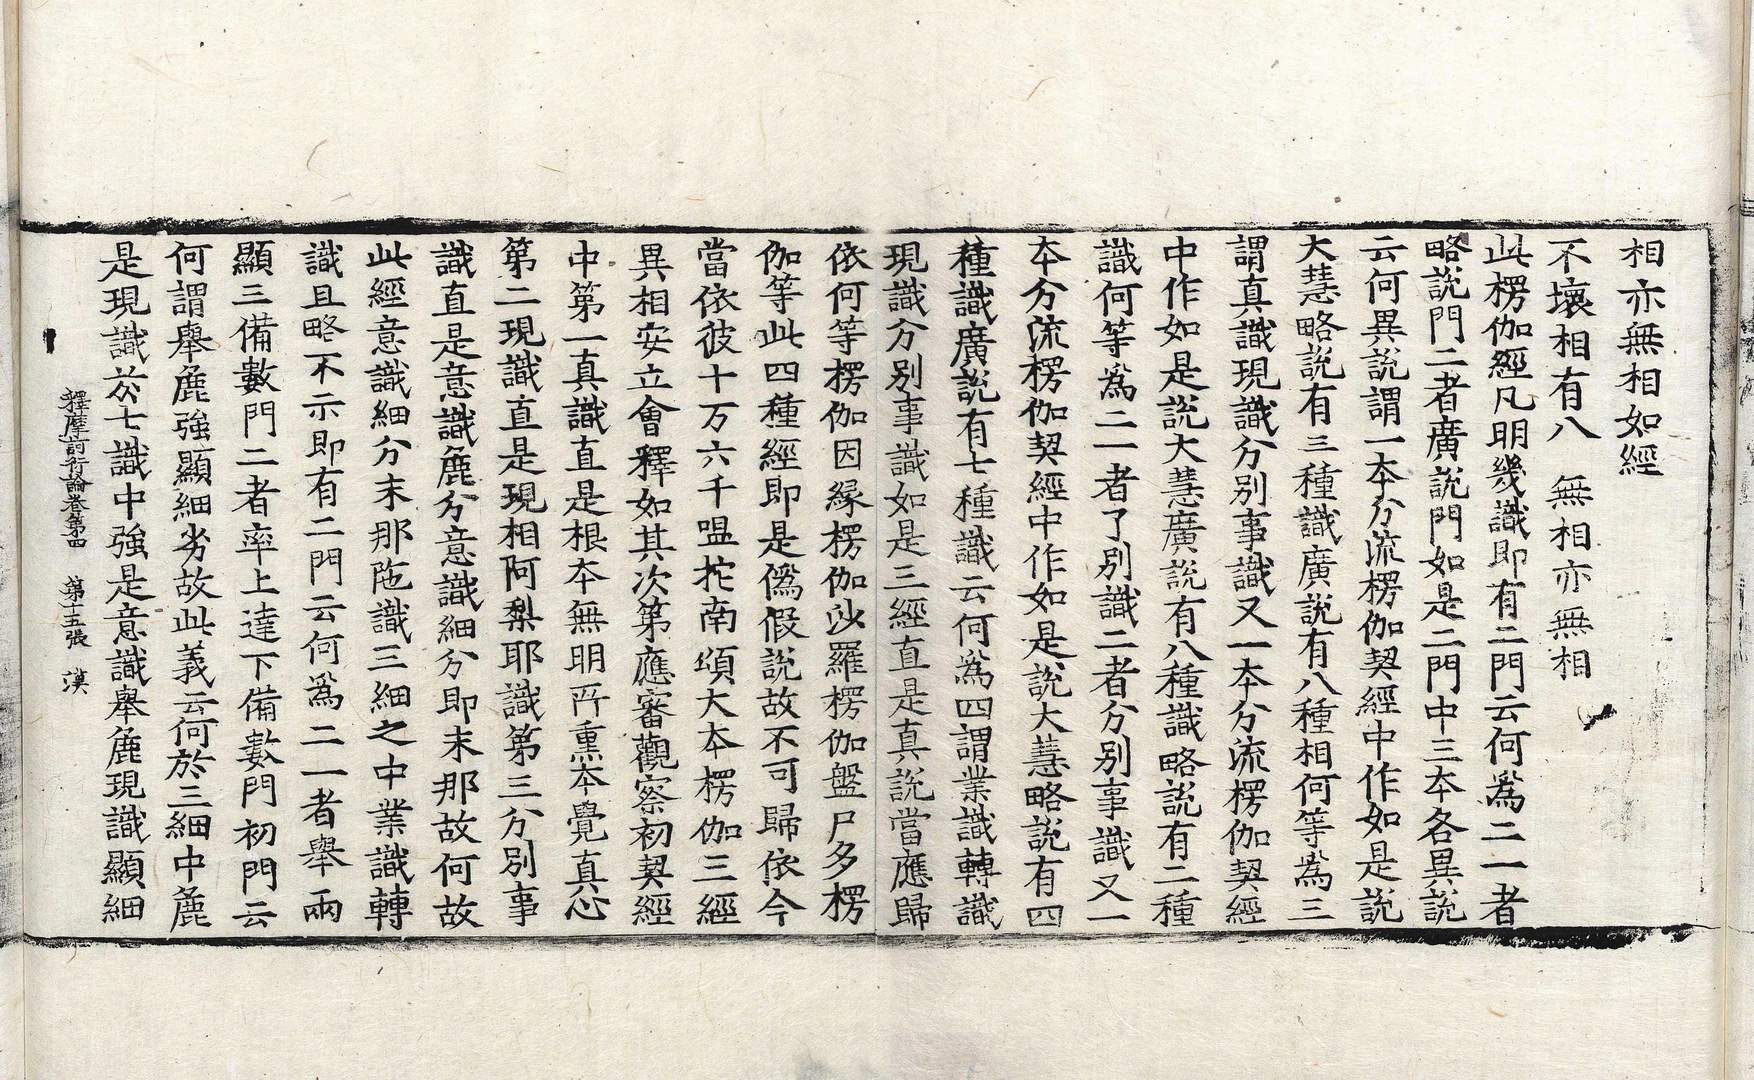 相亦無相如經
不壞相有八　無相亦無相
此楞伽經凡明幾識即有二門云何爲二一者
略說門二者廣說門如是二門中三本各異說
云何異說謂一本分流楞伽契經中作如是說
大慧略說有三種識廣說有八種相何等爲三
謂真識現識分別事識又一本分流楞伽契經
中作如是說大慧廣說有八種識略說有二種
識何等爲二一者了別識二者分別事識又一
本分流楞伽契經中作如是說大慧略說有四
種識廣說有七種識云何爲四謂業識轉識
現識分別事識如是三經直是真說當應歸
依何等楞伽因緣楞伽沙羅楞伽盤尸多楞
伽等此四種經即是僞假說故不可歸依今
當依彼十万六千䀌拕南頌大本楞伽三經
異相安立會釋如其次第應審觀察初契經
中第一真識直是根本無明所熏本覺真心
第二現識直是現相阿梨耶識第三分別事
識直是意識麁分意識細分即末那故何故
此經意識細分末那陁識三細之中業識轉
識且略不示即有二門云何爲二一者舉兩
顯三備數門二者率上達下備數門初門云
何謂舉麁強顯細劣故此義云何於三細中麁
是現識於七識中強是意識舉麁現識顯細
釋摩訶衍論卷第四　第十五張　漢